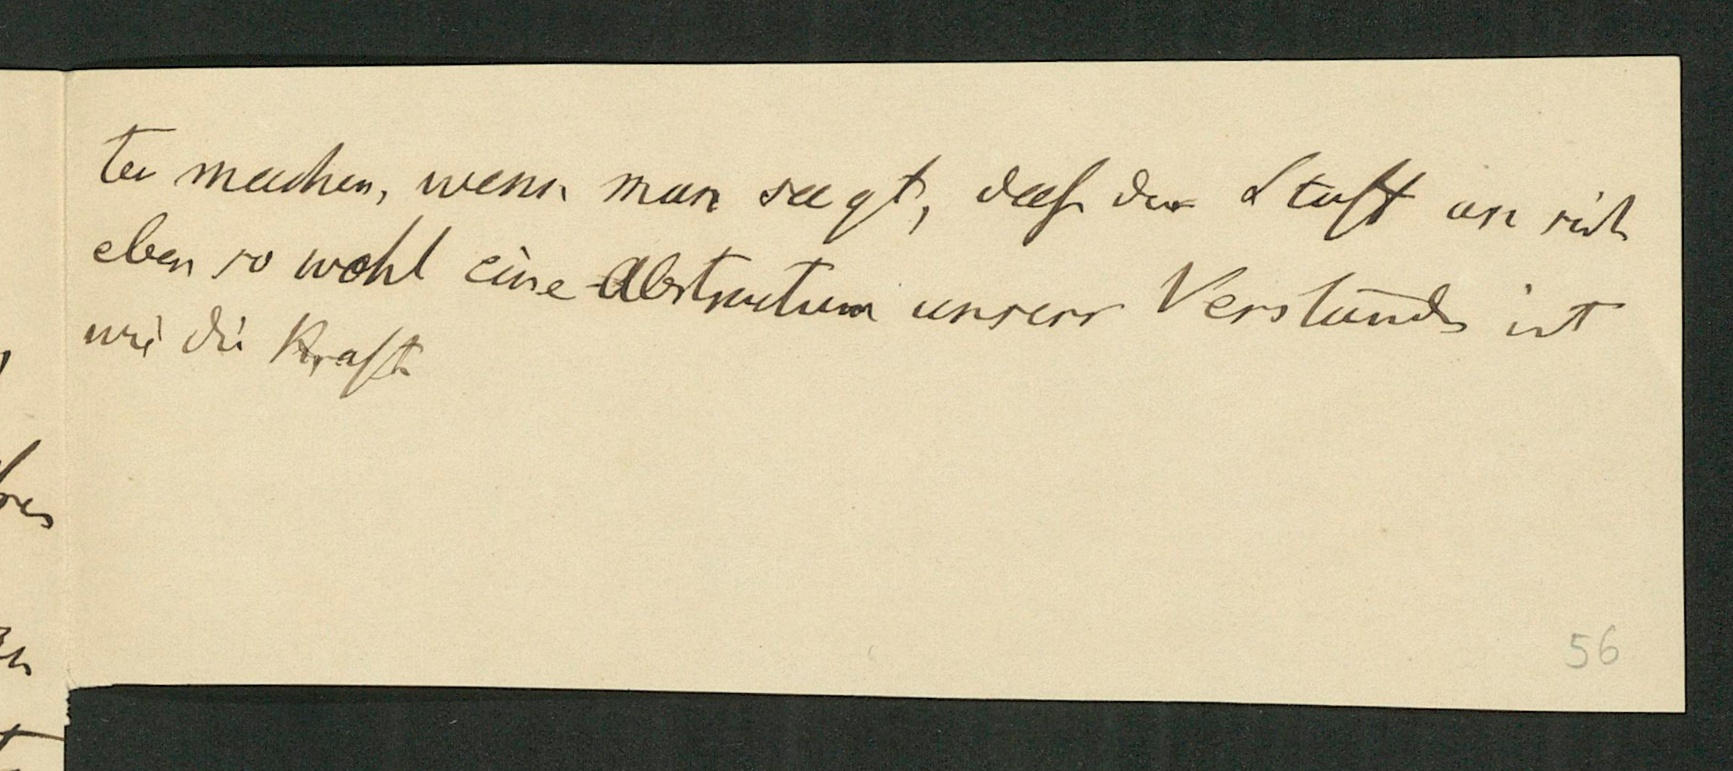 ter machen, wenn man sagt, daß der Stoff an sich
eben so wohl eine Abstractum unserr Verstands ist
wie die Kraft
56